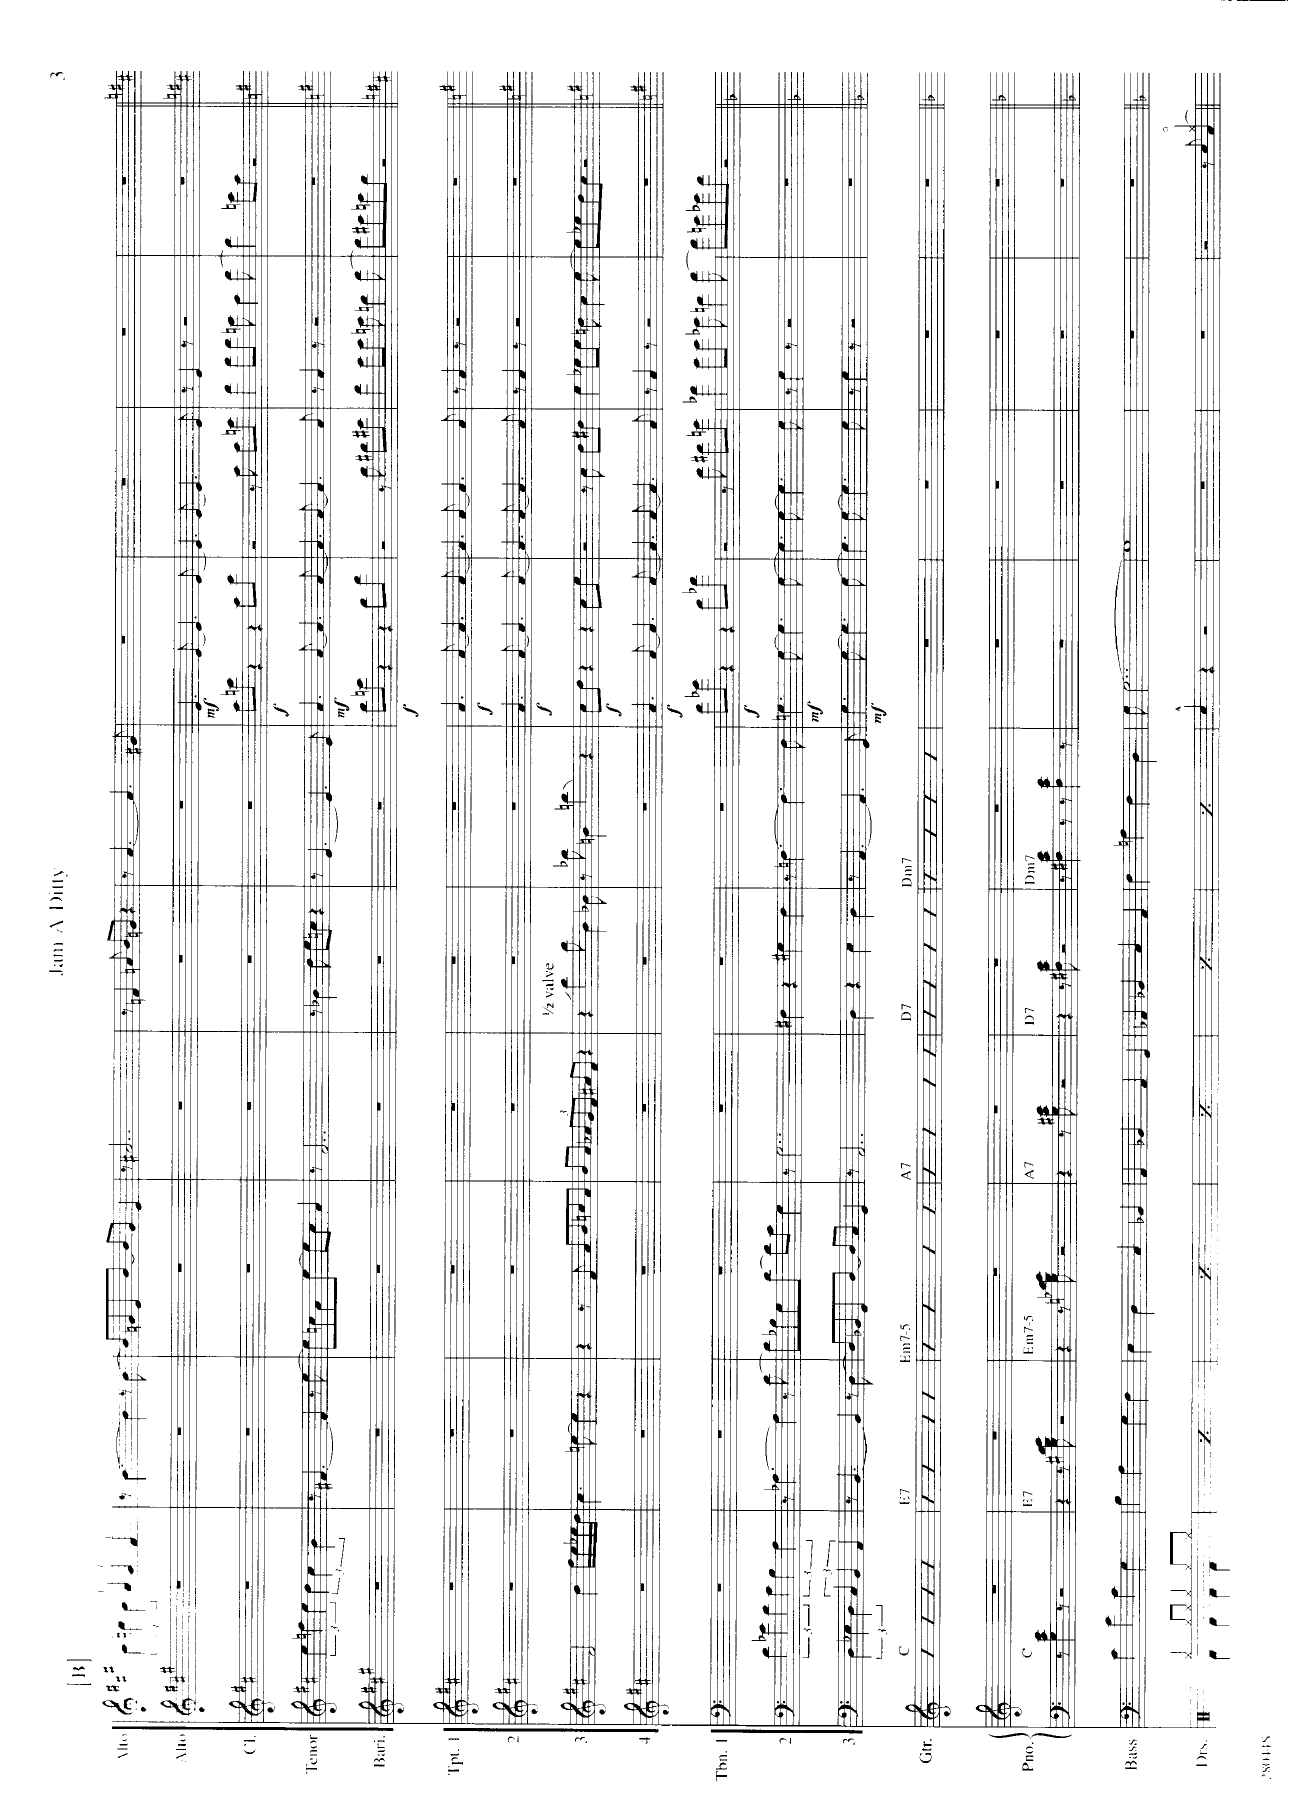 Jam A Ditty
3
[B]
Alto
Alto
Cl.
Tenor
Bari.
Tpt. 1
2
3
4
Tbn. 1
2
3
Gtr.
Pno.
Bass
Drs.
3 3
3 3
3 3
3 3
3
½ valve
C E7 Em7-5 A7 D7 Dm7
C E7 Em7-5 A7 D7 Dm7
mf
f
mf
f
f
f
f
f
f
mf
mf